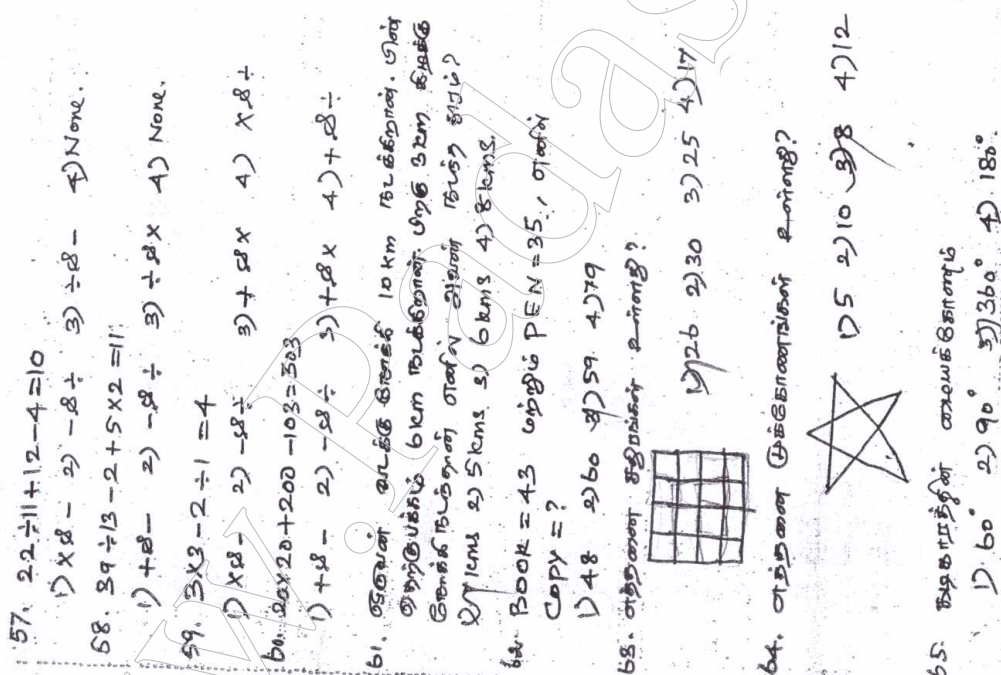 57. 22÷11+12-4=10
1) ×& - 2) -&÷ 3) ÷&- 4) None.
58. 39÷13-2+5×2=11
1) +&- 2) -&÷ 3) ÷&× 4) None.
59. 3×3-2÷1=4
1) ×&- 2) -&÷ 3) +&× 4) ×&÷
60. 20×20+200-103=303
1) +&- 2) -&÷ 3) +&× 4) +&÷
61. ஒருவன் வடக்கு நோக்கி 10 km நடக்கிறான். பின்
தெற்குபக்கம் 6km நடக்கிறான். பிறகு 3km கிழக்கு
நோக்கி நடந்தான் எனில் அவன் நடந்த தூரம்?
kms 2) 5kms 3) 6kms 4) 8kms.
62. BOOK=43 மற்றும் PEN=35, எனில்
COPY=?
1) 48 2) 60 3) 59 4) 79
63. எத்தனை சதுரங்கள் உள்ளது?
1) 26 2) 30 3) 25 4) 17
64. எத்தனை முக்கோணங்கள் உள்ளது?
1) 5 2) 10 3) 8 4) 12
65. கடிகாரத்தின் மையக்கோணம்
1) 60° 2) 90° 3) 360° 4) 180°.